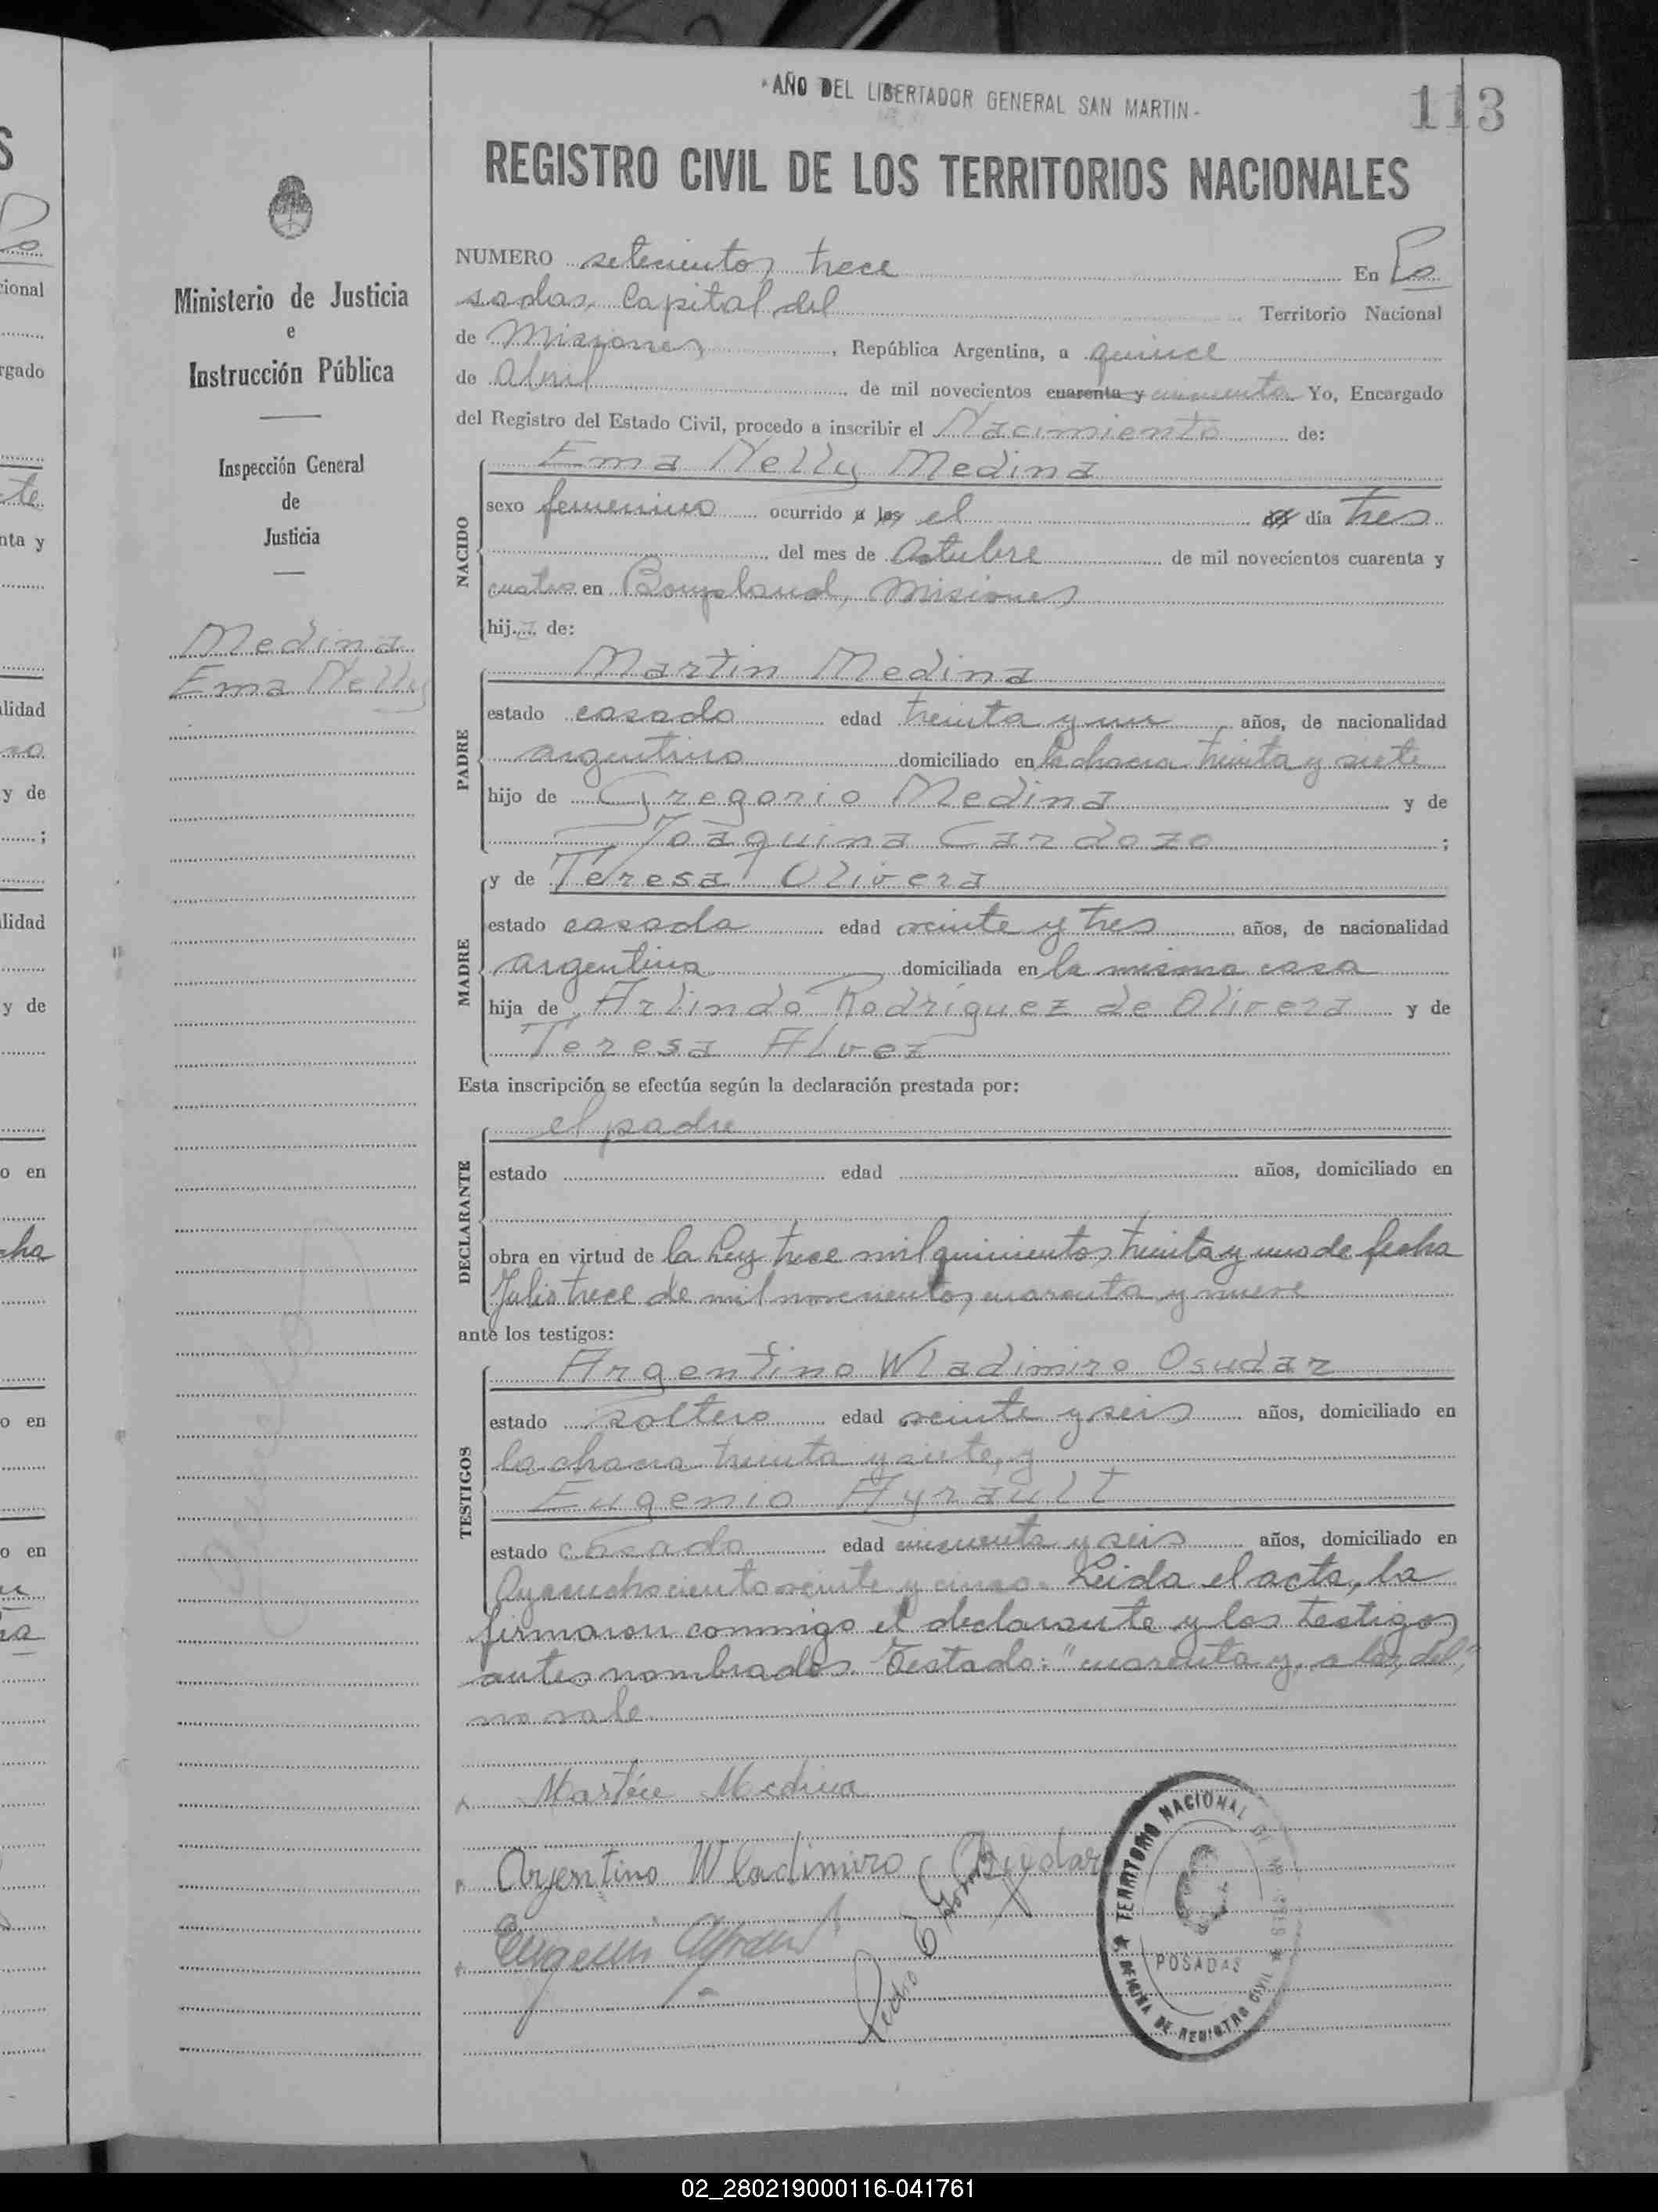 "AÑO DEL LIBERTADOR GENERAL SAN MARTIN"
113
REGISTRO CIVIL DE LOS TERRITORIOS NACIONALES
Ministerio de Justicia
e
Instrucción Pública
Inspección General
de
Justicia
Medina
Ema Nelly
NUMERO setecientos trece En Po
sadas, Capital del Territorio Nacional
de Misiones, República Argentina, a quince
de Abril de mil novecientos cuarenta y cincuenta Yo, Encargado
del Registro del Estado Civil, procedo a inscribir el Nacimiento de:
Ema Nelly Medina
NACIDO
sexo femenino ocurrido a las el del día tres
del mes de Octubre de mil novecientos cuarenta y
cuatro en Bompland, Misiones
hija de:
Martin Medina
PADRE
estado casado edad treinta y un años, de nacionalidad
argentino domiciliado en la chacra treinta y siete
hijo de Gregorio Medina y de
Joaquina Cardozo ;
y de Teresa Olivera
MADRE
estado casada edad veinte y tres años, de nacionalidad
argentina domiciliada en la misma casa
hija de Arlindo Rodríguez de Olivera y de
Teresa Alvez
Esta inscripción se efectúa según la declaración prestada por:
el padre
DECLARANTE
estado edad años, domiciliado en
obra en virtud de la Ley trece mil quinientos treinta y uno de fecha
Julio trece de mil novecientos cuarenta y nueve
ante los testigos:
Argentino Wladimiro Osudar
TESTIGOS
estado soltero edad veinte y seis años, domiciliado en
la chacra treinta y siete, y
Eugenio Ayrault
estado casado edad cincuenta y seis años, domiciliado en
Ayacucho ciento veinte y cinco. Leida el acta, la
firmaron conmigo el declarante y los testigos
antes nombrados Testado: "cuarenta y, a las, del,"
no vale
Martín Medina
Argentino Wladimiro
Eugenio Ayrault
Pedro E.
TERRITORIO NACIONAL DE MISIONES
POSADAS
OFICINA DE REGISTRO CIVIL
02_280219000116-041761